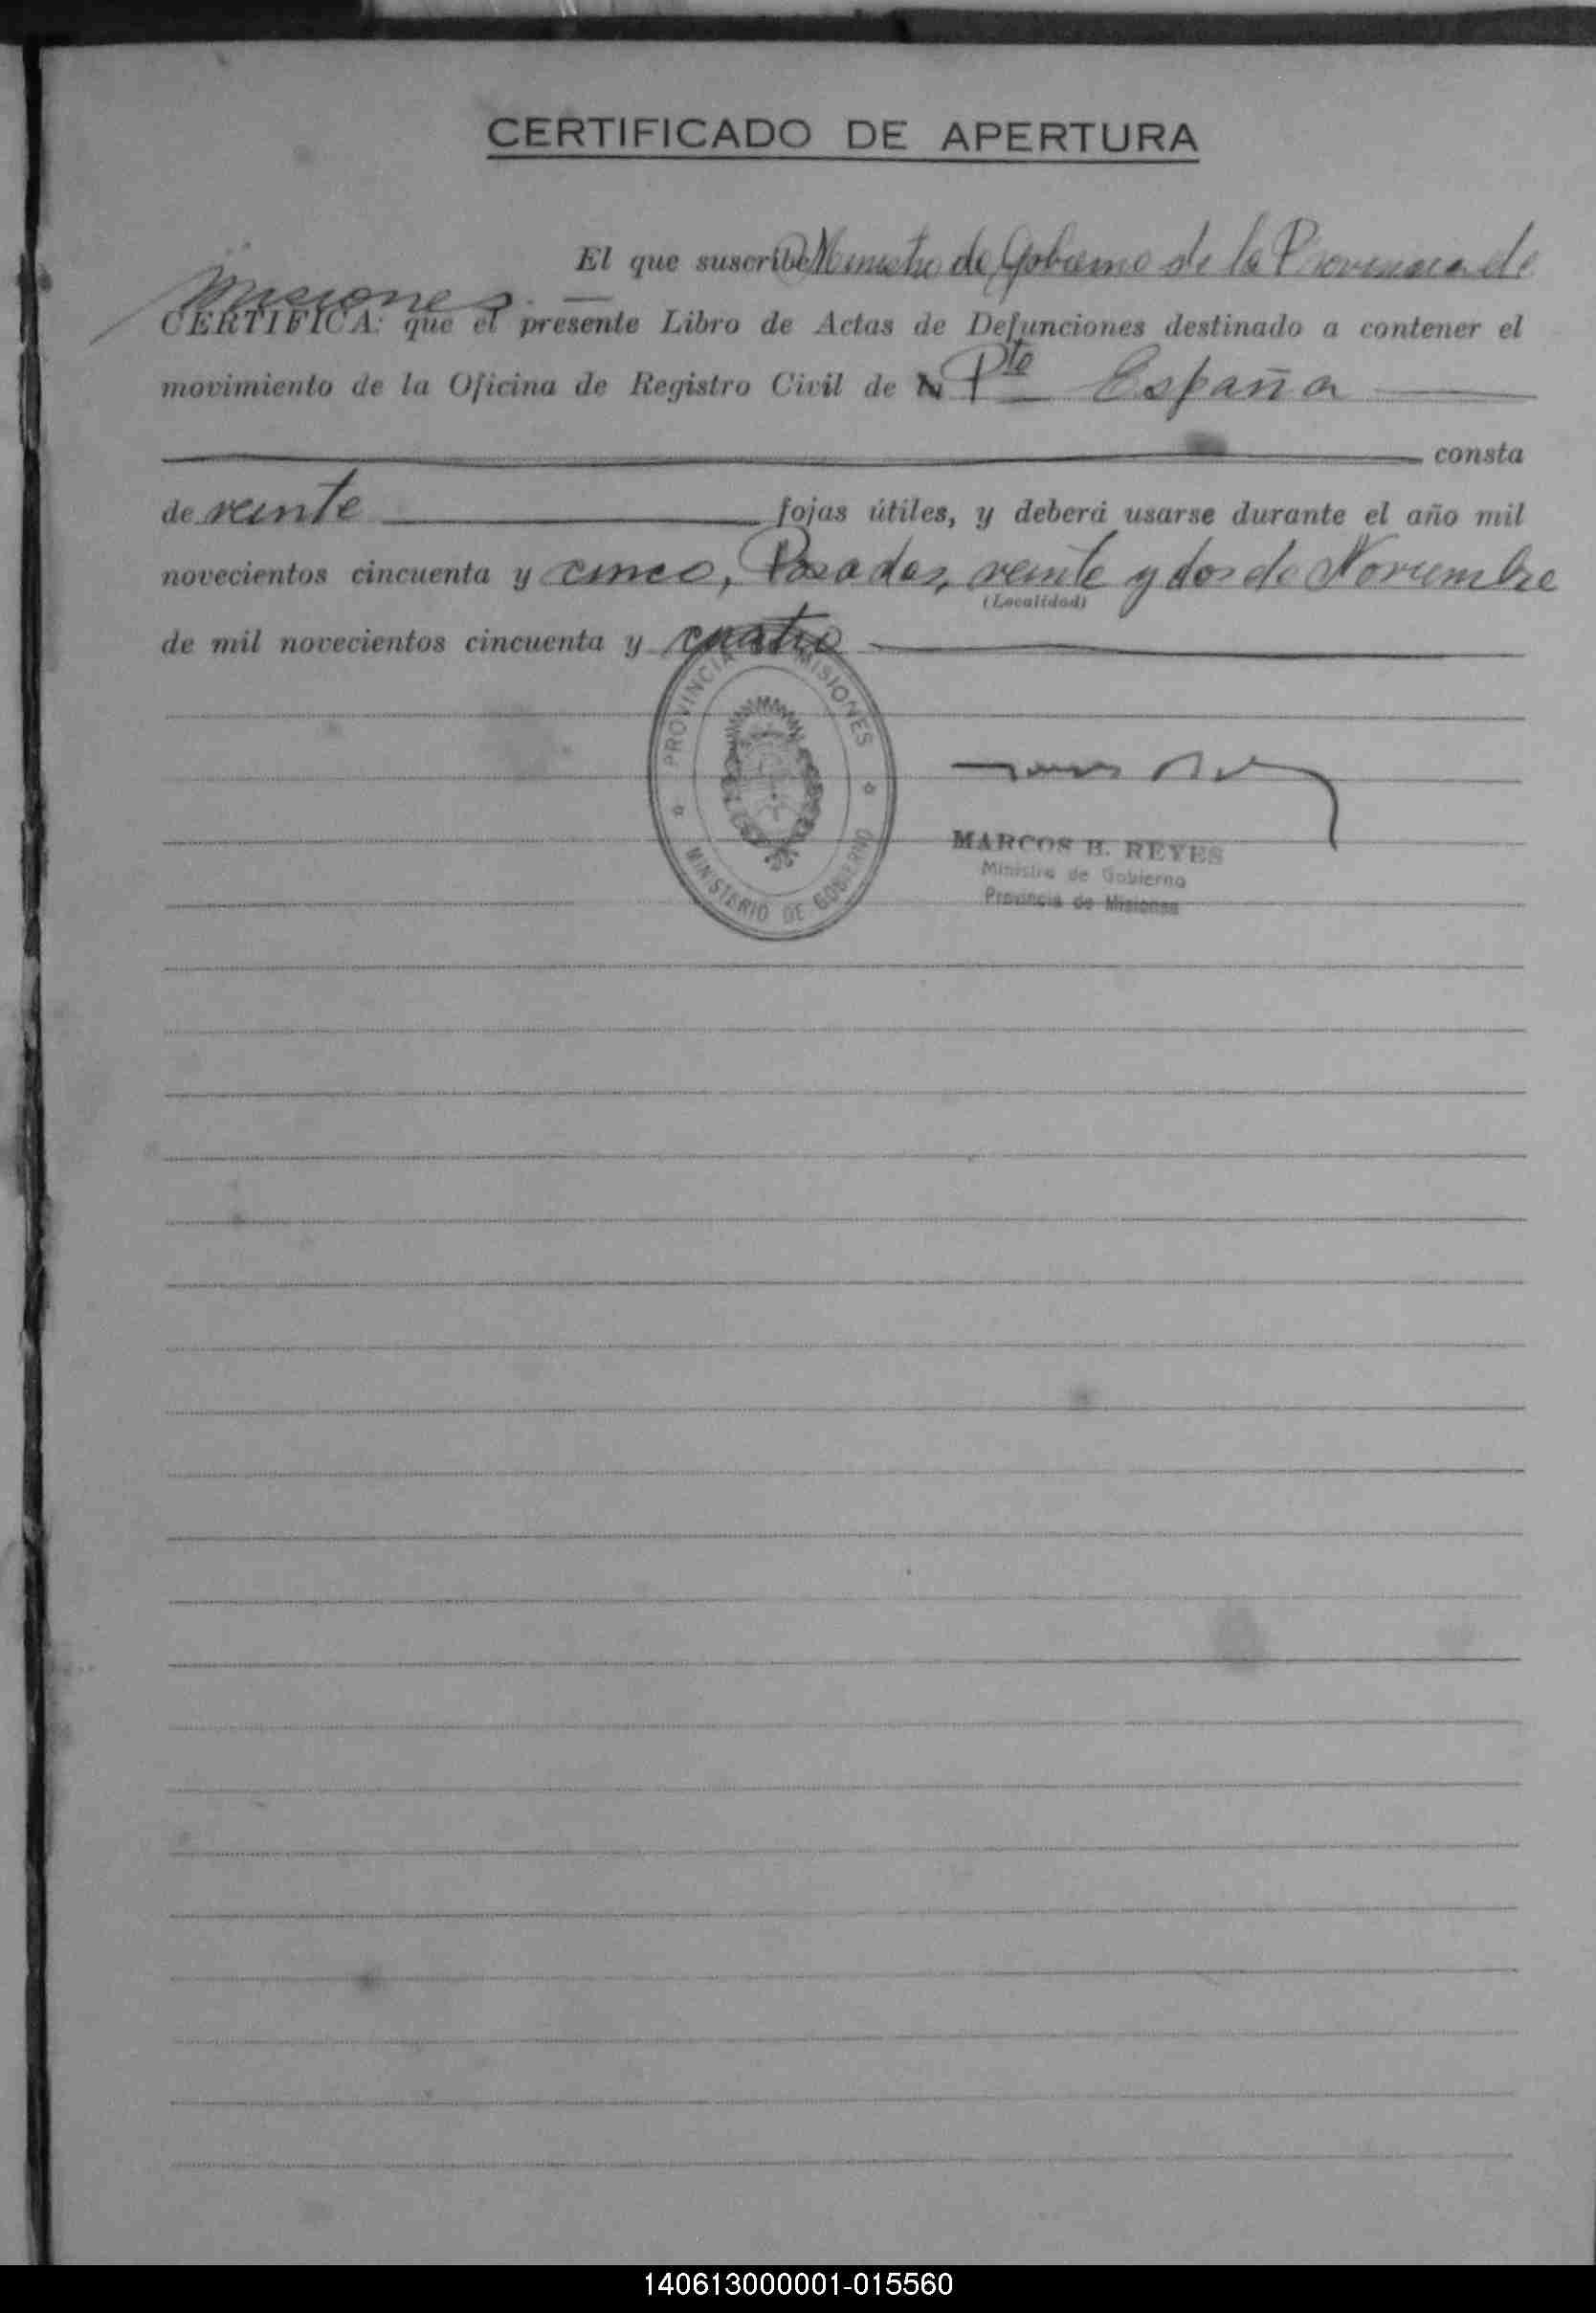 CERTIFICADO DE APERTURA
El que suscribe Ministro de Gobierno de la Provincia de
Misiones. —
CERTIFICA: que el presente Libro de Actas de Defunciones destinado a contener el
movimiento de la Oficina de Registro Civil de Pto España
consta
de veinte fojas útiles, y deberá usarse durante el año mil
novecientos cincuenta y cinco, Posadas, veinte y dos de Noviembre
(Localidad)
de mil novecientos cincuenta y cuatro
PROVINCIA MISIONES
MINISTERIO DE GOBIERNO
MARCOS H. REYES
Ministro de Gobierno
Provincia de Misiones
140613000001-015560